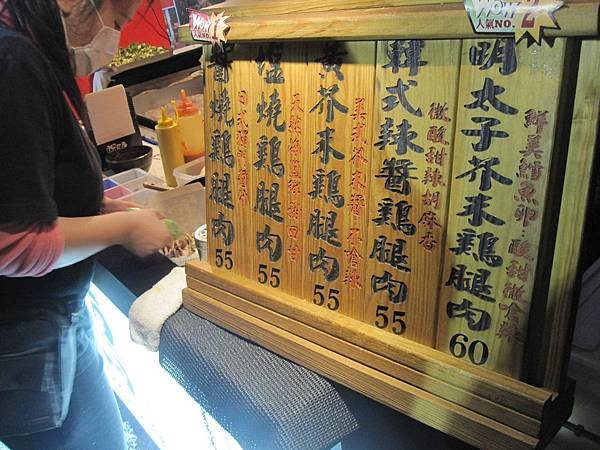 WOW 1
人氣NO.
WOW 2
人氣NO.
明太子芥末雞腿肉
60
鮮美鱈魚卵 酸甜微嗆辣
韓式辣醬雞腿肉
55
微酸甜辣胡麻香
黃芥末雞腿肉
55
美式芥末醬 不嗆辣
塩燒雞腿肉
55
醬燒雞腿肉
55